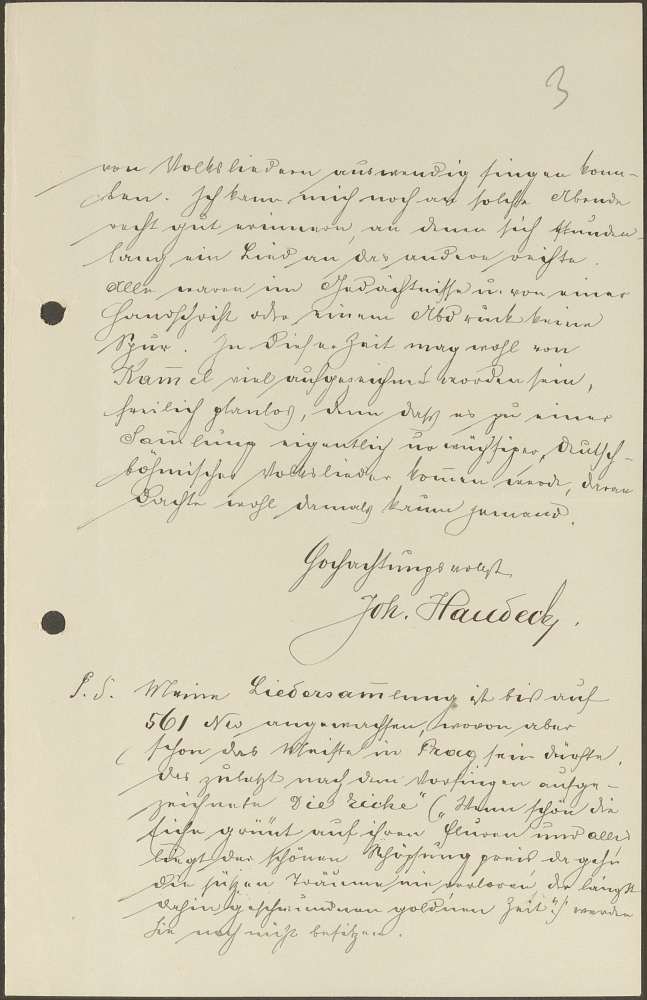 3
von Volksliedern auswendig singen konn-
ten. Ich kann mich noch an solche Abende
recht gut erinnern, an denen sich stunden-
lang ein Lied an das andere reihte.
Alle waren im Gedächtnisse u. von einer
Handschrift oder einem Abdruck keine
Spur. In dieser Zeit mag wohl von
Kam̄el viel aufgezeichnet worden sein,
freilich planlos, denn daß es zu einer
Sam̄lung eigentlich urwüchsiger, deutsch-
böhmischer Volkslieder kom̄en werde, daran
dachte wohl damals kaum jemand.
Hochachtungsvollst
Joh. Haudeck.
P. S. Meine Liedersam̄lung ist bis auf
561 No angewachsen, wovon aber
schon das Meiste in Prag sein dürfte,
das zuletzt nach dem Vorsingen aufge-
zeichnete „Die Eiche“ („Wenn schön die
Eiche grünt auf ihren Fluren und alles
liegt der schönen Schöpfung preis, da gehn
die süßen Träume nie verloren, der längst
dahin geschwundnen goldnen Zeit“) werden
Sie noch nicht besitzen.